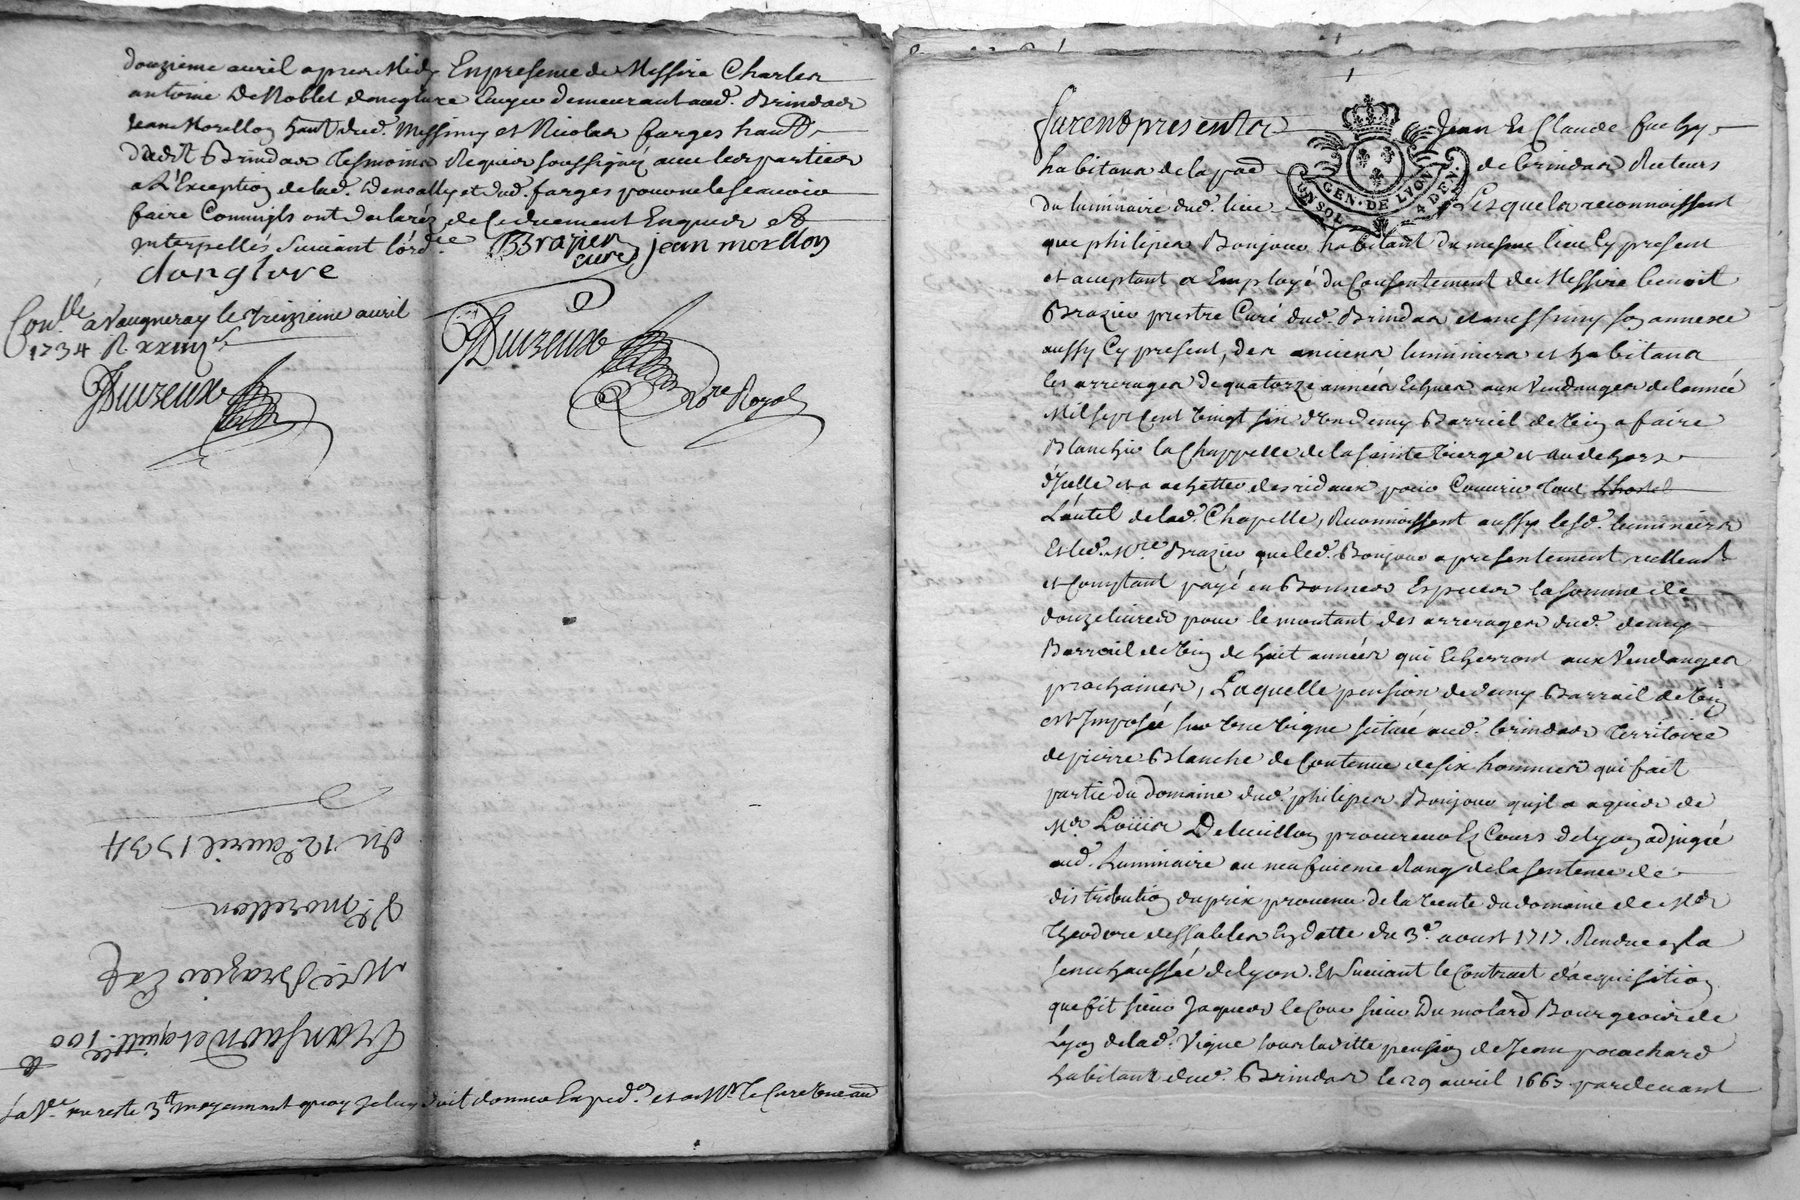 douzieme avril apres Midy En presence de Messire Charles
antoine De Noblet danglure Ecuyer demeurant aud. Brindas
Jean Morellon habt dud. Messimy et Nicolas farges habt
dudit Brindas Tesmoins Requis soussignéz avec les parties
a L'Exception de lad. et dud. farges pour ne le scavoir
faire Comm'ils ont declaréz de ce duement Enquis et
interpellés Suivant l'ordce
BBrazier curé jean morllon
danglure
Conllé a Vaugneray le treizieme avril
1734 R xxiiij s
Duizeux
Duizeux Nore Royal
du 12e avril 1734
Jn morellon
Mre Brazier Cré
Transaction et quittce 100
en reste 3tt moyennant quoy je luy doit donner Exped.on et a Mr le Curé
GEN. DE LYON
UN SOL 4 DEN.
furent presentes Jean et Claude
habitans de la pad de brindas Recteurs
du luminaire dud. lieu Lesquels reconnoissent
que philipes Bonjour habitant du mesme lieu Cy present
et aceptant a Employé du Consentement de Messire benoit
Brazier prestre Curé dud. Brindas et messimy son annexe
aussy Cy present, des anciens luminiers et habitans
les arrerages de quatorze années Echues aux Vendanges de l'année
Mil sept Cent vingt six d'un demy Barreil de vin a faire
Blanchir la Chappelle de la sainte vierge et au dehors
d'Icelle et a achetter des rideaux pour Couvrir tout
L'autel de lad. Chapelle, Reconnoissent aussy lesd. luminiers
Et led. Mre Brazier que led. Bonjour a presentement reellemt
et Comptant payé en Bonnes Especes la somme de
douze livres pour le montant des arrerages dud. demy
Barreil de vin de huit années qui Echerront aux Vendanges
prochaines, Laquelle pension de demy Barrail de vin
est Imposée sur une vigne scituée aud. brindas Territoire
de pierre Blanche de Contenue de six hommées qui fait
partie du domaine dud. philipes Bonjour qu'il a aquis de
Mr Loüis procureur Es Cours de Lyon adjugée
aud. Luminaire au neufvieme Rang de la sentence de
distribution du prix provenu de la vente du domaine de Mr
Theodore dessables En datte du 3e aoust 1717. Rendue En la
senechaussée de Lyon. Et Suivant le Contract d'acquisition
que fit sieur Jaques le Cour sieur Dumolard Bourgeois de
Lyon de lad. Vigne sous laditte pension de Jean
habitant dud. Brindas le 29 avril 1667 pardevant